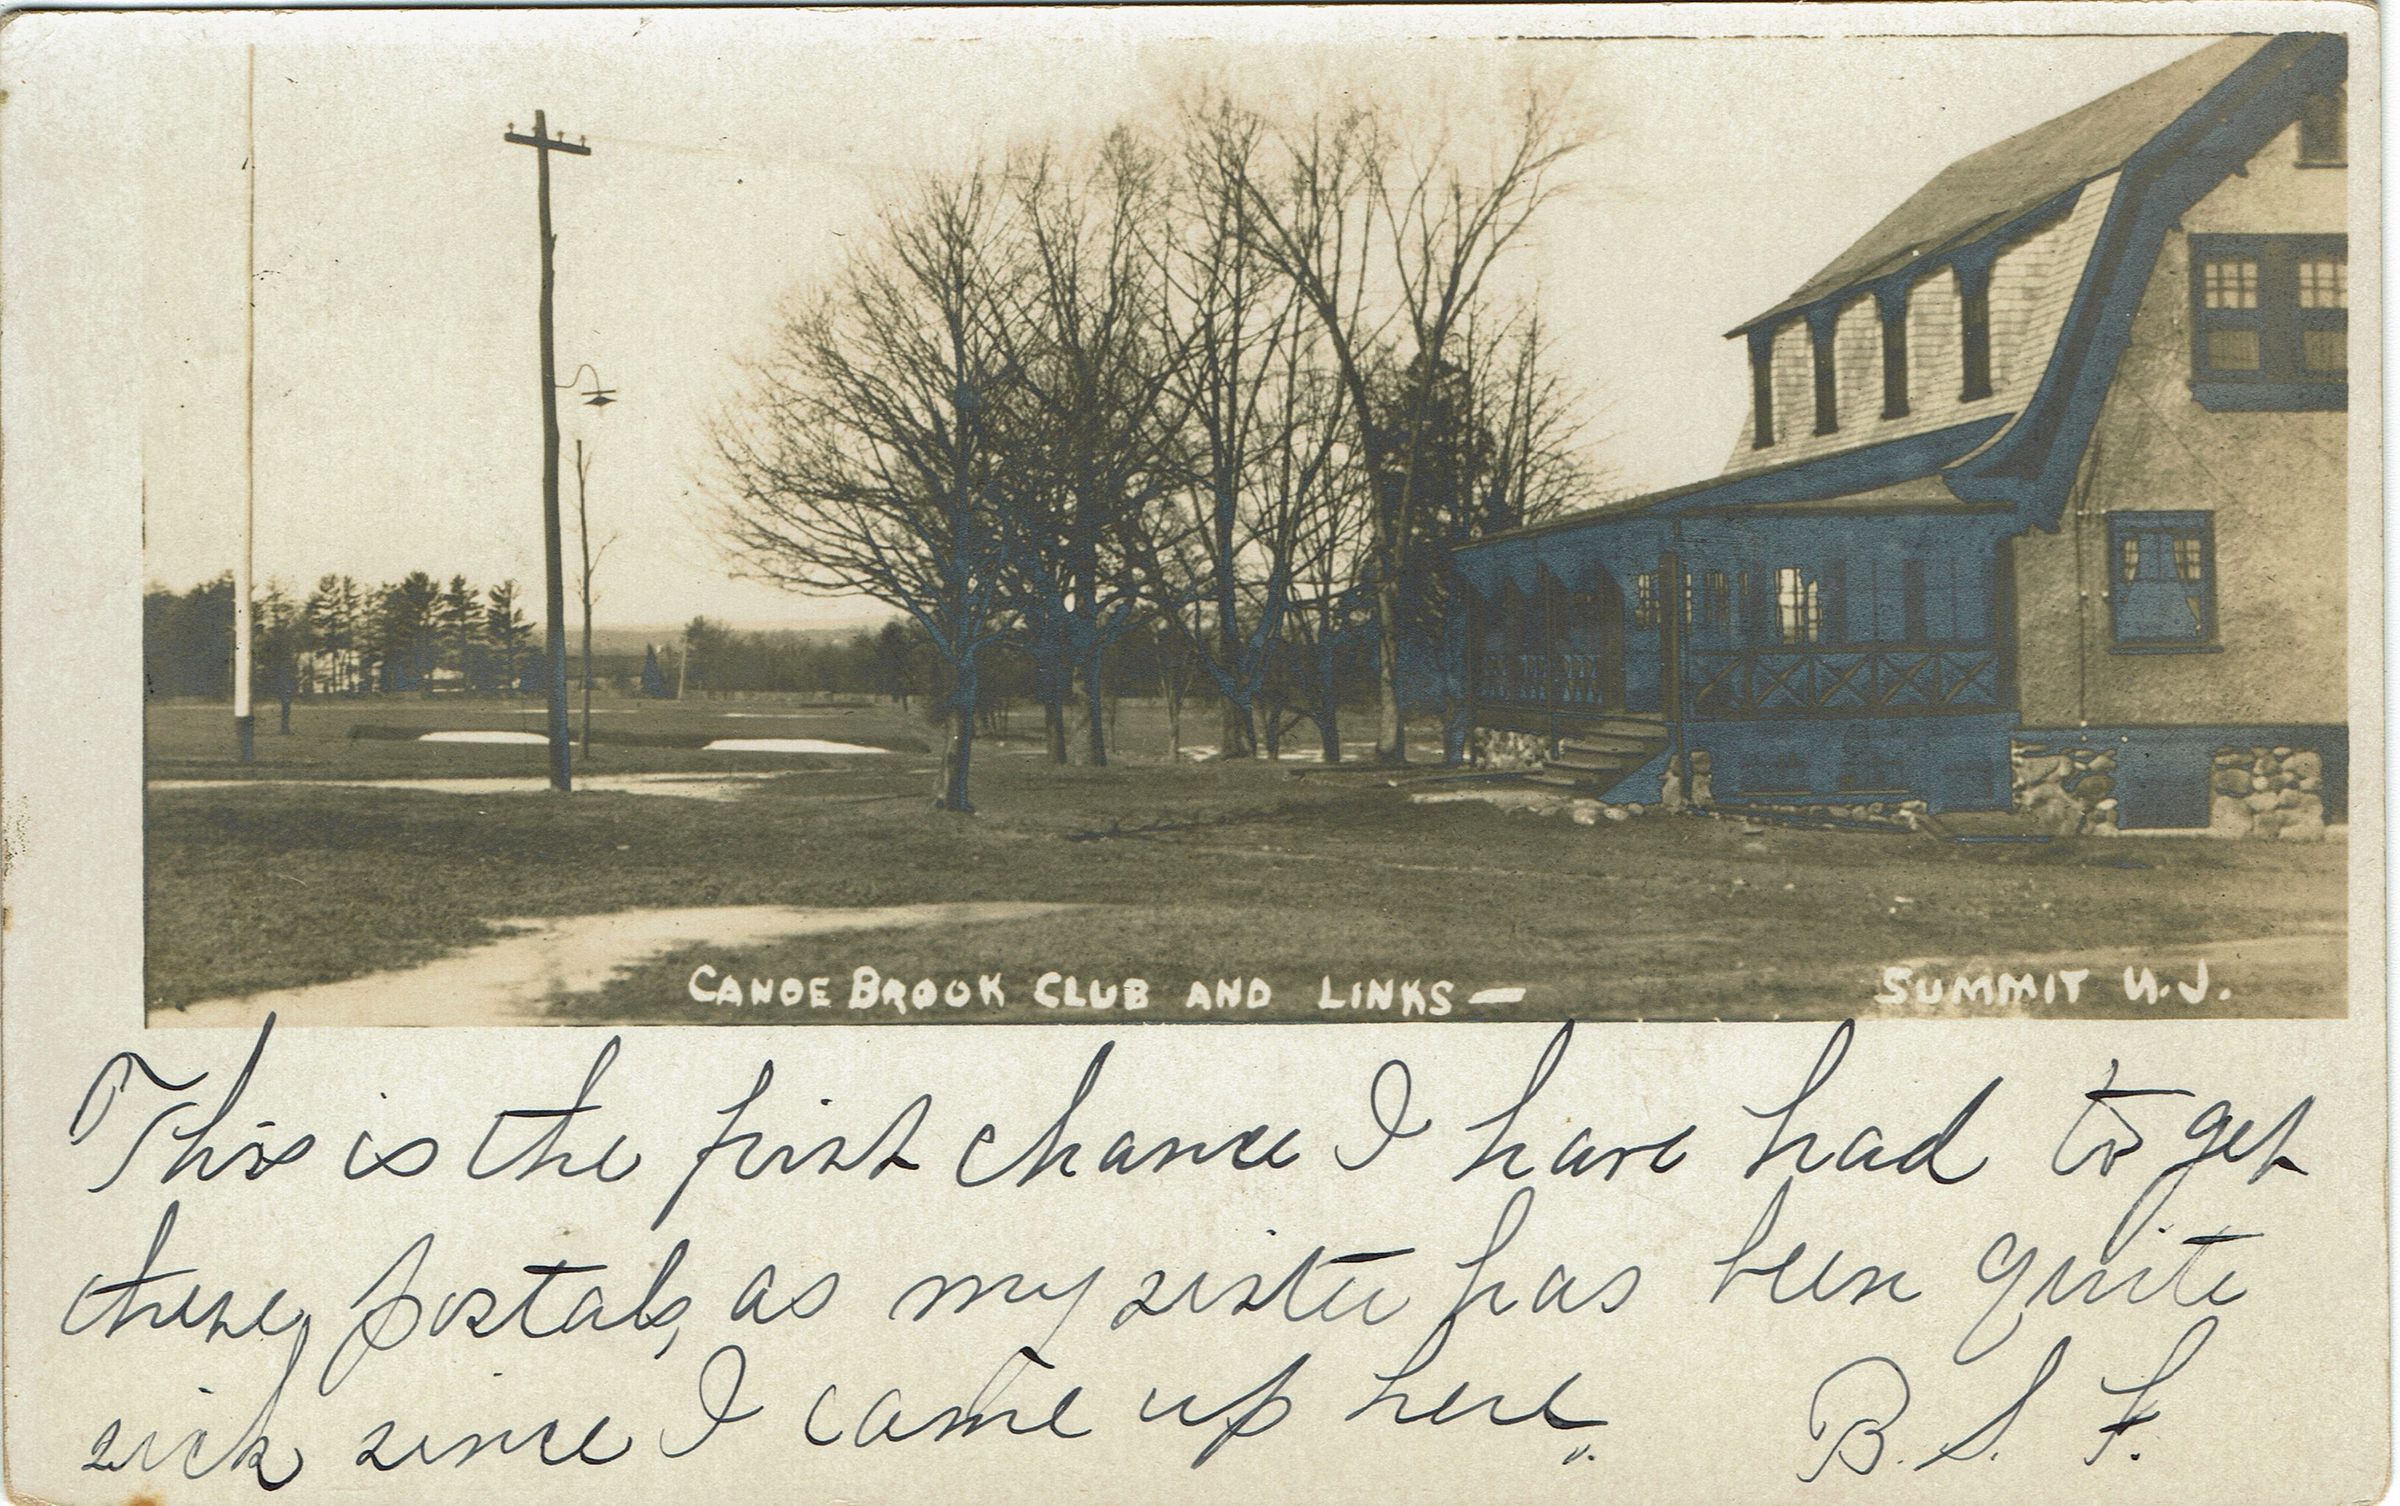 CANOE BROOK CLUB AND LINKS— SUMMIT N.J.
This is the first chance I have had to get
these postals, as my sister has been quite
sick since I came up here. B. S. F.